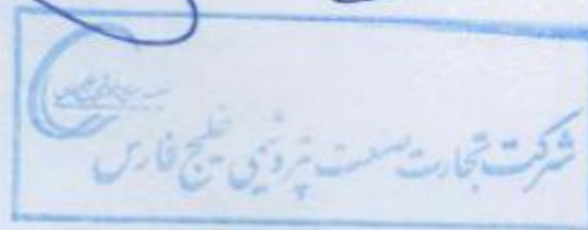 شرکت تجارت صنعت پتروشیمی خلیج فارس